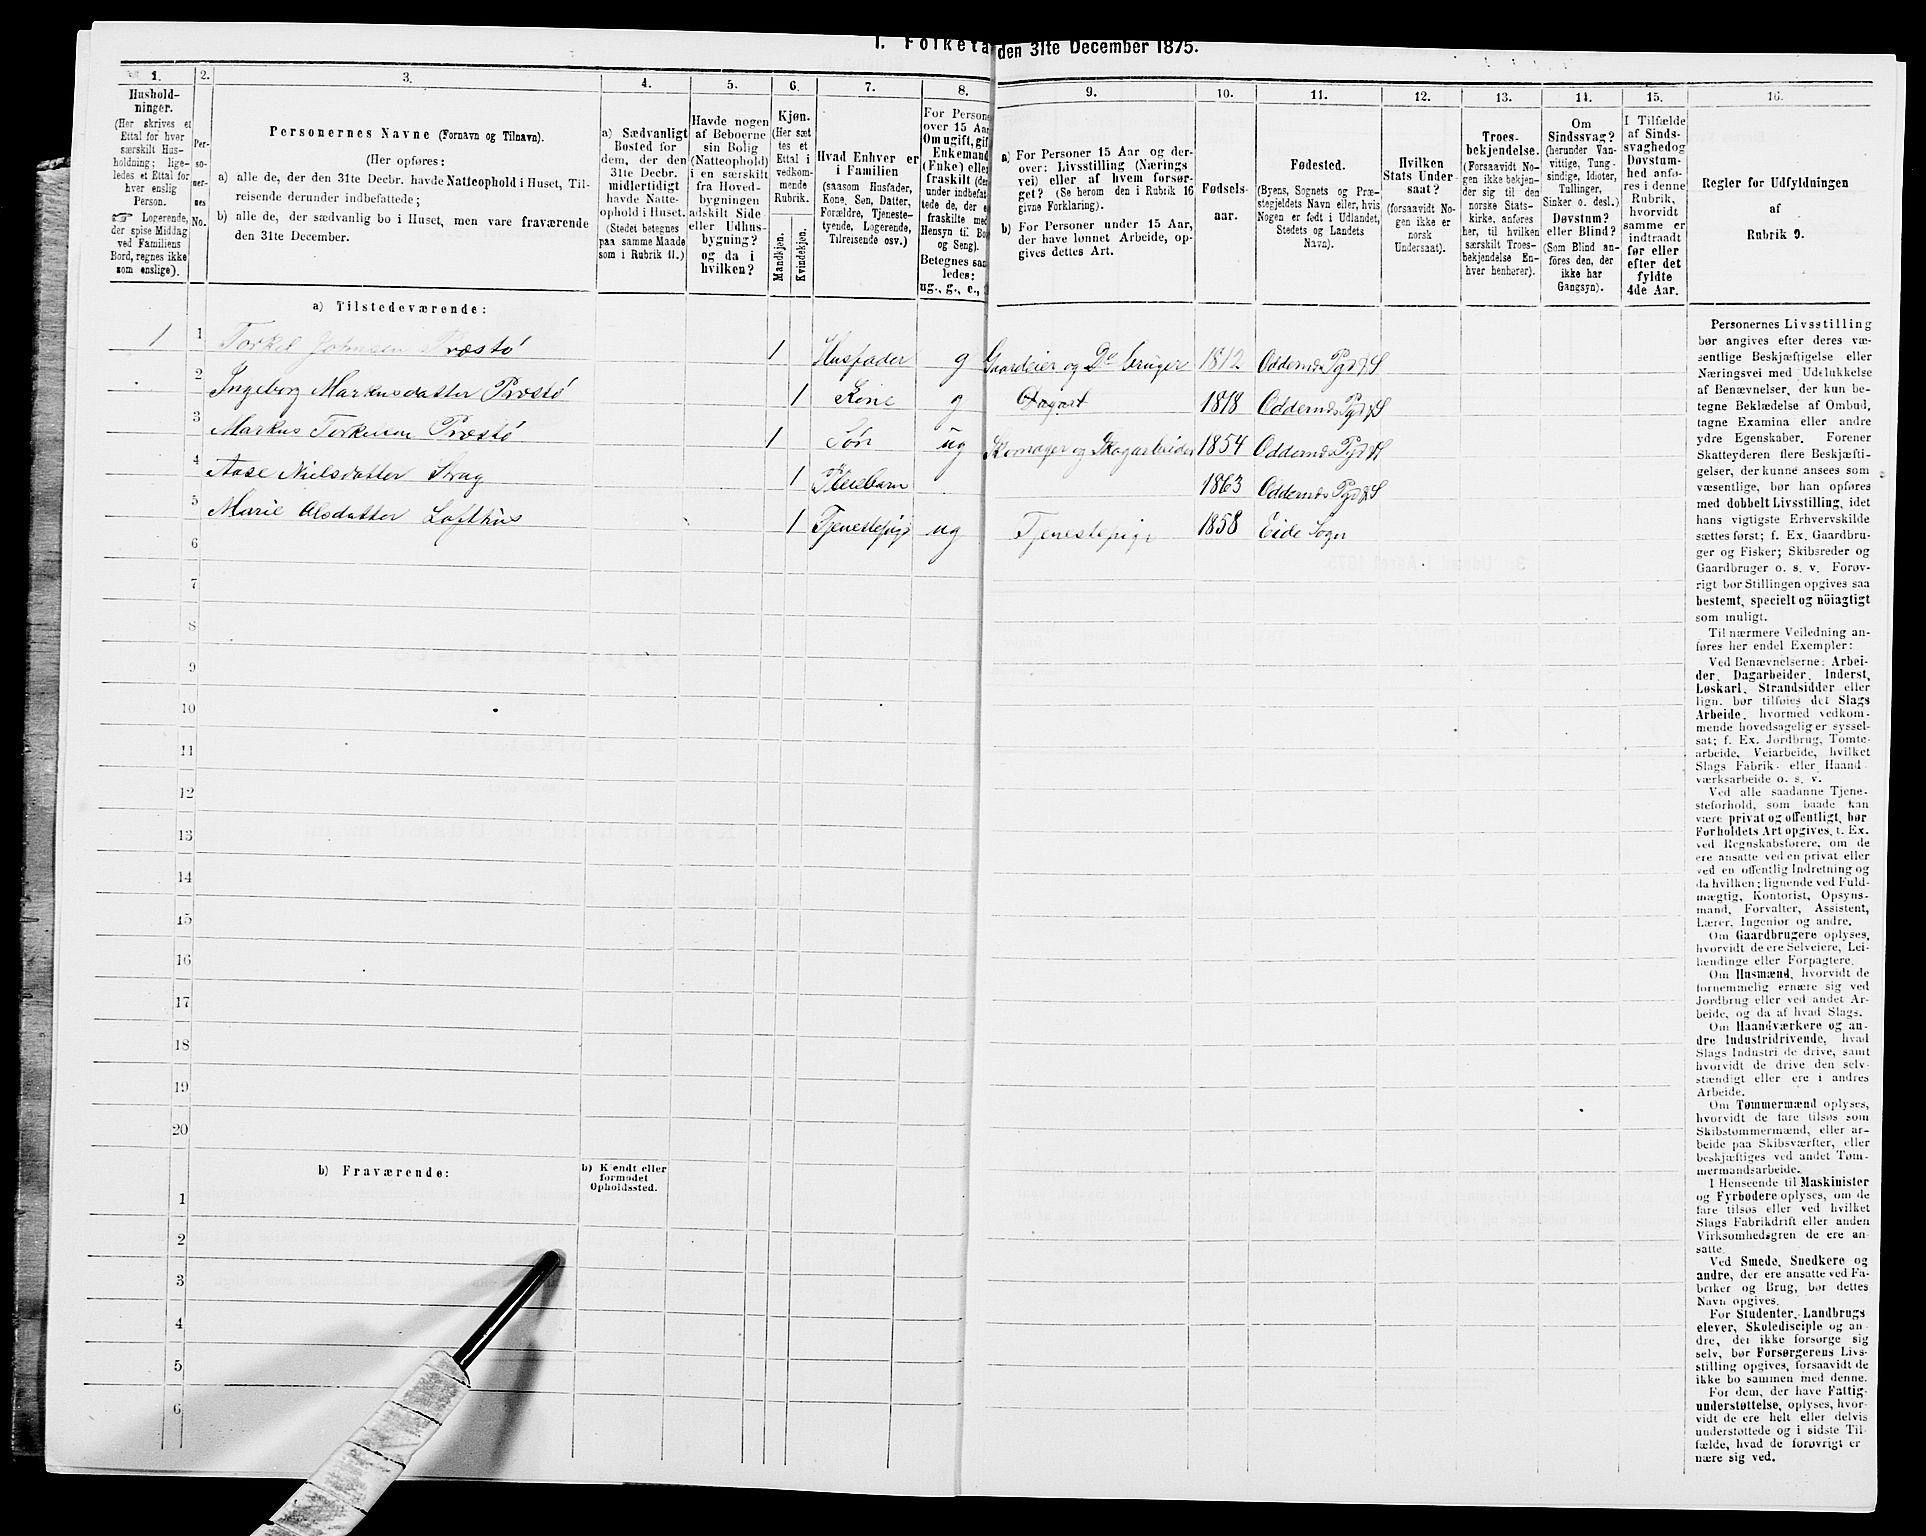 1. Folketæ
den 31te December 1875.
1.
Hushold-
ninger.
(Her skrives et
Ettal for hver
særskilt Hus-
holdning; lige-
ledes et Ettal for
hver enslig
Person.
☞ Logerende,
der spise Middag
ved Familiens
Bord, regnes ikke
som enslige).
2.
Per-
so-
ner-
nes
No.
3.
Personernes Navne (Fornavn og Tilnavn).
(Her opføres:
a) alle de, der den 31te Decbr. havde Natteophold i Huset, Til-
reisende derunder indbefattede;
b) alle de, der sædvanlig bo i Huset, men vare fraværende
den 31te December.
4.
a) Sædvanligt
Bosted for
dem, der den
31te Decbr.
midlertidigt
havde Natte-
ophold i Huset.
(Stedet betegnes
paa samme Maade
som i Rubrik 11.)
5.
Havde nogen
af Beboerne
sin Bolig
(Natteophold)
i en særskilt
fra Hoved-
bygningen
adskilt Side
eller Udhus-
bygning?
og da i
hvilken?
6.
Kjøn.
(Her sæt
tes et
Ettal i
vedkom-
mende
Rubrik.
Mandkjøn.
Kvindekjøn.
7.
Hvad Enhver er
i Familien
(saasom Husfader,
Kone, Søn, Datter,
Forældre, Tjeneste-
tyende, Logerende,
Tilreisende osv.)
8.
For Persone
over 15 Aar
Om ugift, gif
Enkemand
(Enke) elle
fraskilt (der
under indbefat
tede de, der e
fraskilte med
Hensyn til Bo
og Seng).
Betegnes saa
ledes:
ug., g., e.,
9.
a) For Personer 15 Aar og der-
over: Livsstilling (Nærings
vei) eller af hvem forsør-
get? (Se herom den i Rubrik 16
givne Forklaring).
b) For Personer under 15 Aar,
der have lønnet Arbeide, op-
gives dettes Art.
10.
Fødsels-
aar.
11.
Fødested.
(Byens, Sognets og Præ-
stegjeldets Navn eller, hvis
Nogen er født i Udlandet,
Stedets og Landets
Navn).
12.
Hvilken
Stats Under
saat?
(forsaavidt No-
gen ikke er
norsk
Undersaat).
13.
Troes-
bekjendelse.
(Forsaavidt No-
gen ikke bekjen-
der sig til den
norske Stats-
kirke, anføres
her, til hvilken
særskilt Troes-
bekjendelse En-
hver henhører).
14.
Om
Sindssvag?
(herunder Van-
vittige, Tung-
sindige, Idioter,
Tullinger,
Sinker o. desl.)
Døvstum?
eller Blind?
(Som Blind an-
føres den, der
ikke har
Gangsyn).
15.
I Tilfælde
af Sinds-
svaghed og
Døvstum-
hed anfø-
res i denne
Rubrik,
hvorvidt
samme er
indtraadt
før eller
efter det
fyldte
4de Aar.
16.
Regler for Udfyldningen
af
Rubrik 9.
a) Tilstedeværende:
1 1 Torkel Johnsen Præstø 1 Husfader g Gaardeier og Do bruger 1812 Oddernæs Pgd & S
2 Ingeborg Markusdatter Præstø 1 Kone g 1818 Oddernæs Pgd & S
3 Markus Torkelsen Præstø 1 Søn ug Skomager og Skogarbeider 1854 Oddernæs Pgd & S
4 Aase Nielsdatter Strag 1 Pleiebarn 1863 Oddernæs Pgd & S
5 Marie Olsdatter Lofthus 1 Tjenestepige ug Tjenestepige 1858 Eide Sogn
6
7
8
9
10
11
12
13
14
15
16
17
18
19
20
b) Fraværende:
b) Kjendt eller
formodet
Opholdssted.
1
2
3
4
5
6
Personernes Livsstilling
bør angives efter deres væ-
sentlige Beskjæftigelse eller
Næringsvei med Udelukkelse
af Benævnelser, der kun be-
tegne Beklædelse af Ombud,
tagne Examina eller andre
ydre Egenskaber. Forener
Skatteyderen flere Beskjæfti-
gelser, der kunne ansees som
væsentlige, bør han opføres
med dobbelt Livsstilling, idet
hans vigtigste Erhvervskilde
sættes først; f. Ex. Gaardbru-
ger og Fisker; Skibsreder og
Gaardbruger o. s. v. Forøv-
rigt bør Stillingen opgives saa
bestemt, specielt og nöiagtigt
som muligt.
Til nærmere Veiledning an-
føres her endel Exempler:
Ved Benævnelserne: Arbei-
der, Dagarbeider, Inderst,
Løskarl, Strandsidder eller
lign. bør tilføies det Slags
Arbeide, hvormed vedkom-
mende hovedsagelig er syssel-
sat; f. Ex. Jordbrug, Tomte-
arbeide, Veiarbeide, hvilket
Slags Fabrik- eller Haand
værksarbeide o. s. v.
Ved alle saadanne Tjene-
steforhold, som baade kan
være privat og offentligt, bør
Forholdets Art opgives, t. Ex.
ved Regnskabsførere, om de
ere ansatte ved en privat eller
ved en offentlig Indretning og
da hvilken; lignende ved Fuld-
mægtig, Kontorist, Opsyns-
mand, Forvalter, Assistent,
Lærer, Ingeniør og andre.
Om Gaardbrugere oplyses,
hvorvidt de ere Selveiere, Lei-
lændinge eller Forpagtere.
Om Husmænd, hvorvidt de
fornemmelig ernære sig ved
Jordbrug eller ved andet Ar-
beide, og da af hvad Slags.
Om Haandværkere og an-
dre Industridrivende, hvad
Slags Industri de drive, samt
hvorvidt de drive den selv-
stændigt eller ere i andres
Arbeide.
Om Tømmermænd oplyses,
hvorvidt de fare tilsøs som
Skibstømmermænd, eller ar-
beide paa Skibsværfter, eller
beskjæftiges ved andet Tøm-
mermandsarbeide.
I Henseende til Maskinister
og Fyrbødere oplyses, om de
fare tilsøs eller ved hvilket
Slags Fabrikdrift eller anden
Virksomhedsgren de ere an-
satte.
Ved Smede, Snedkere og
andre, der ere ansatte ved Fa-
briker og Brug, bør dettes
Navn opgives.
For Studenter, Landbrugs
elever, Skoledisciple og an-
dre, det ikke forsørge sig
selv, bør Forsørgerens Livs-
stilling opgives, forsaavidt de
ikke bo sammen med denne.
For dem, der have Fattig-
understøttelse, oplyses, hvor-
vidt de ere helt eller delvis
understøttede og i sidste Til-
fælde, hvad de forøvrigt er
nære sig ved.